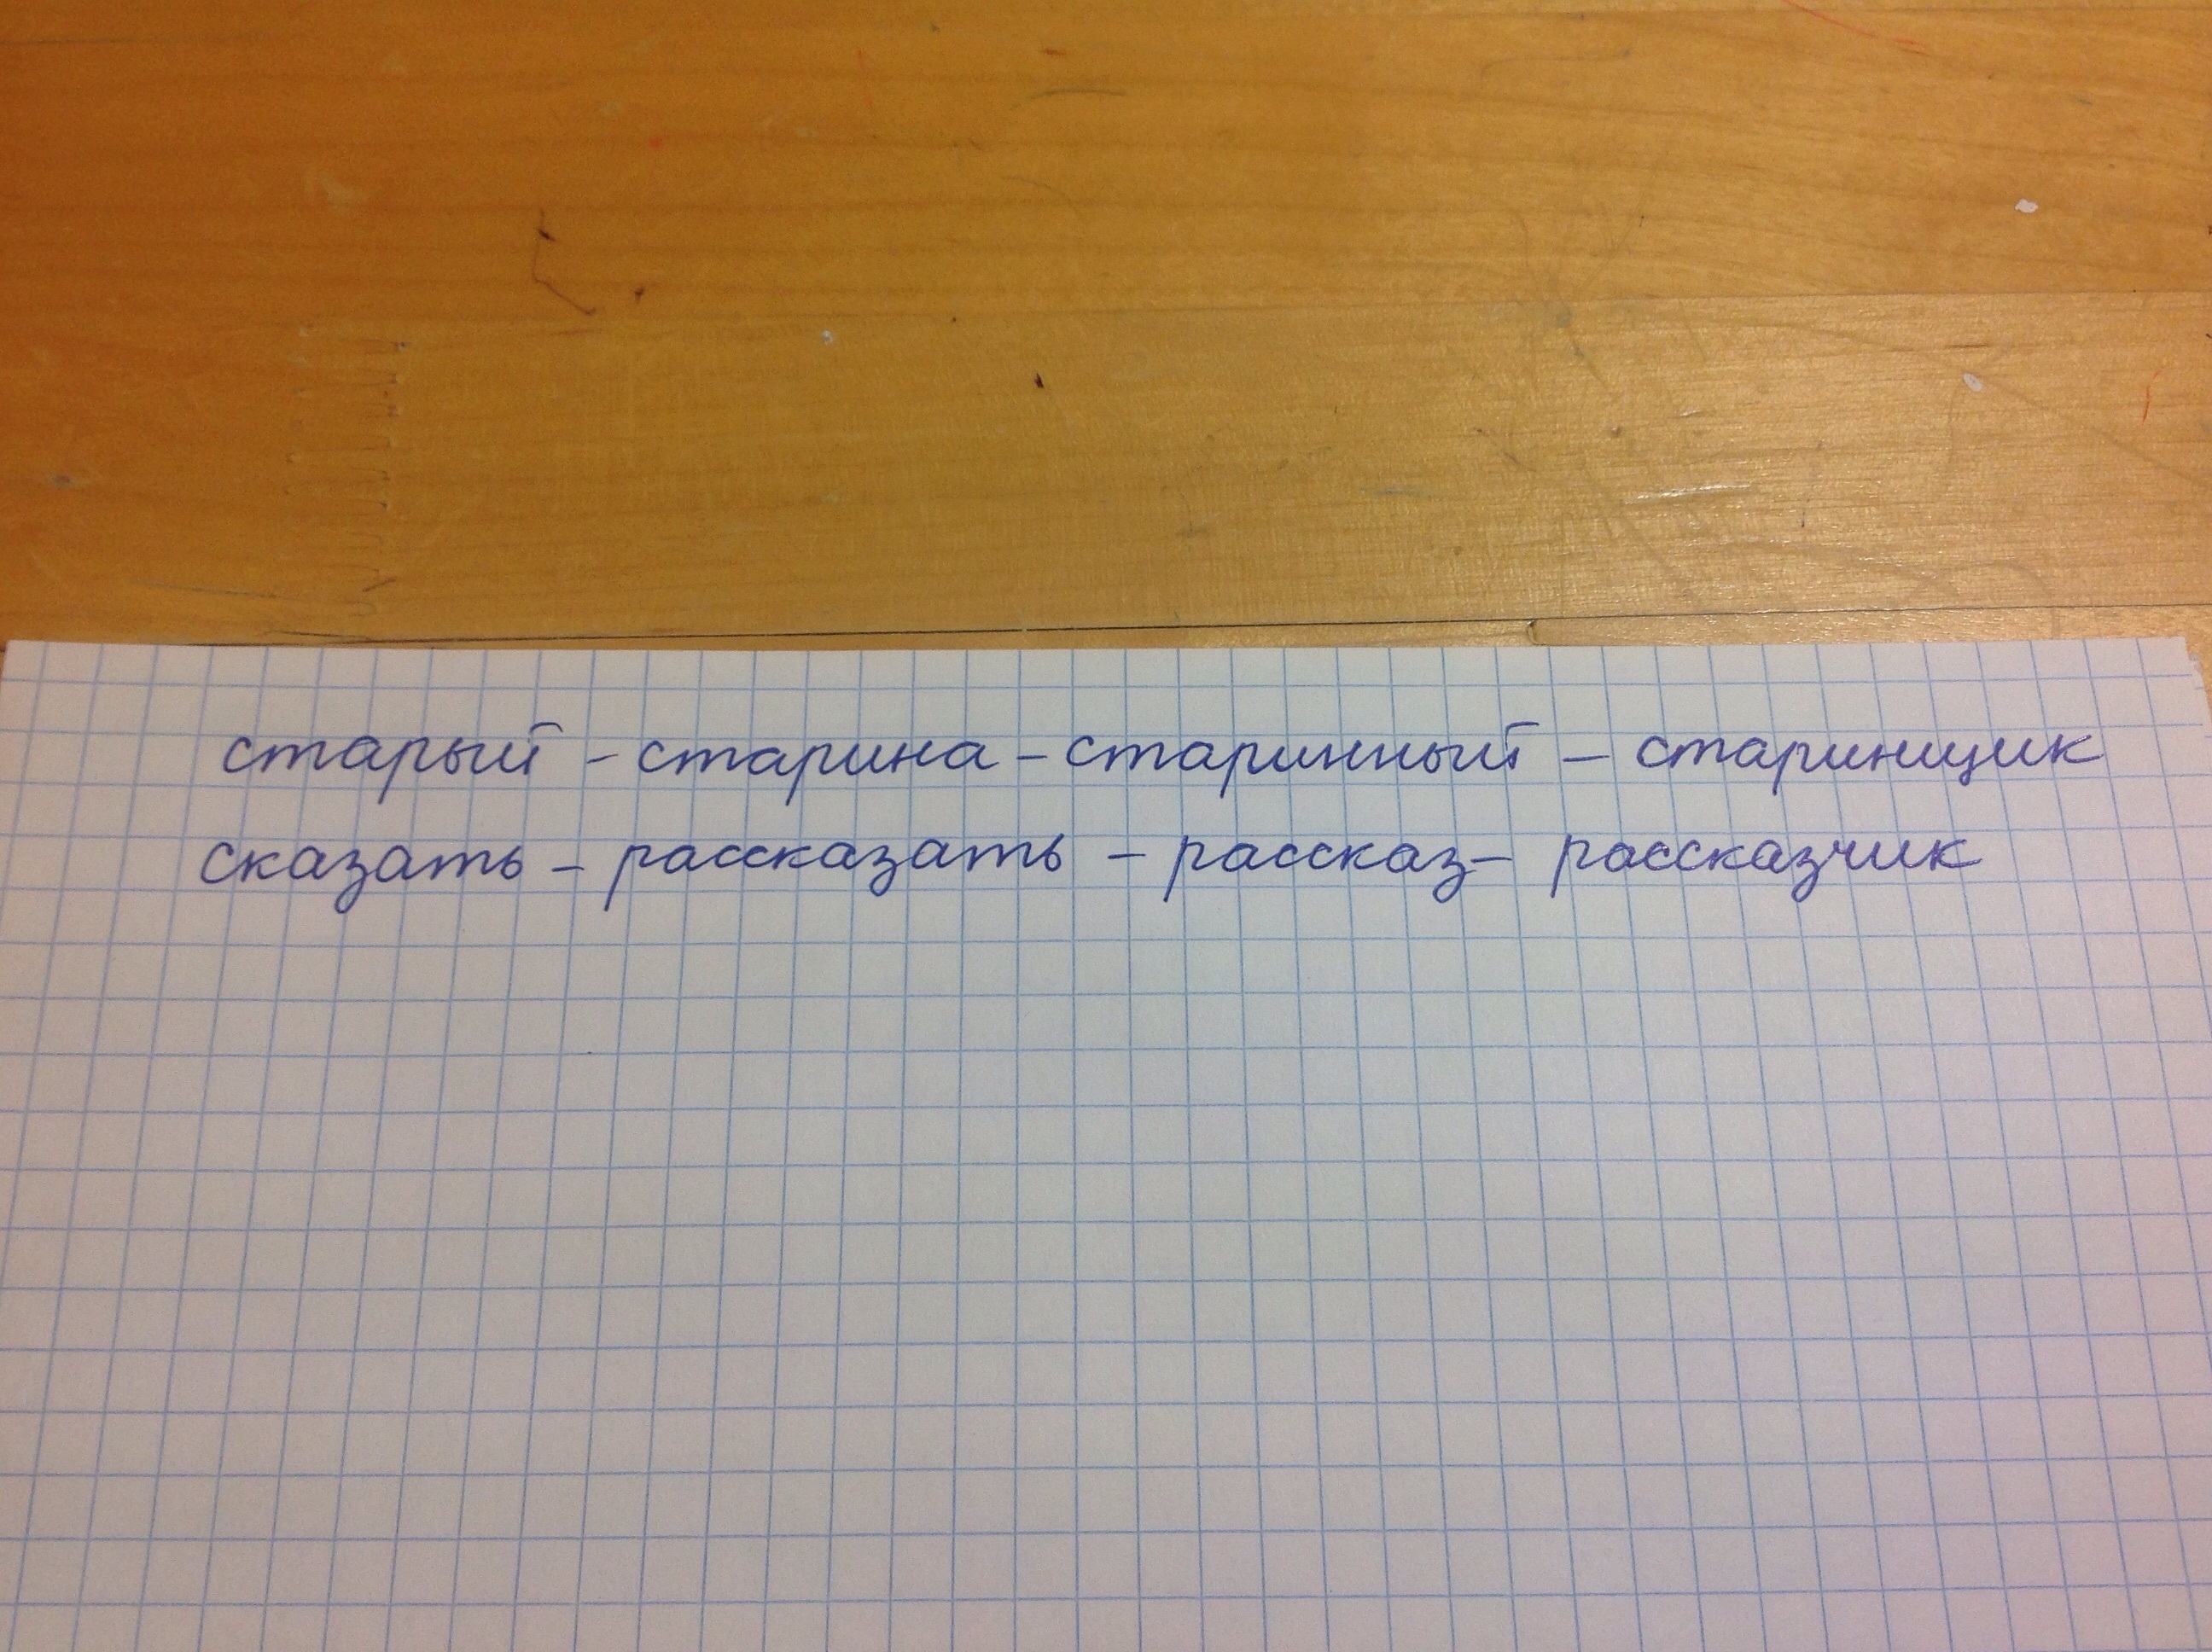 старый - старина - старинный - старинщик
сказать - рассказать - рассказ - рассказчик